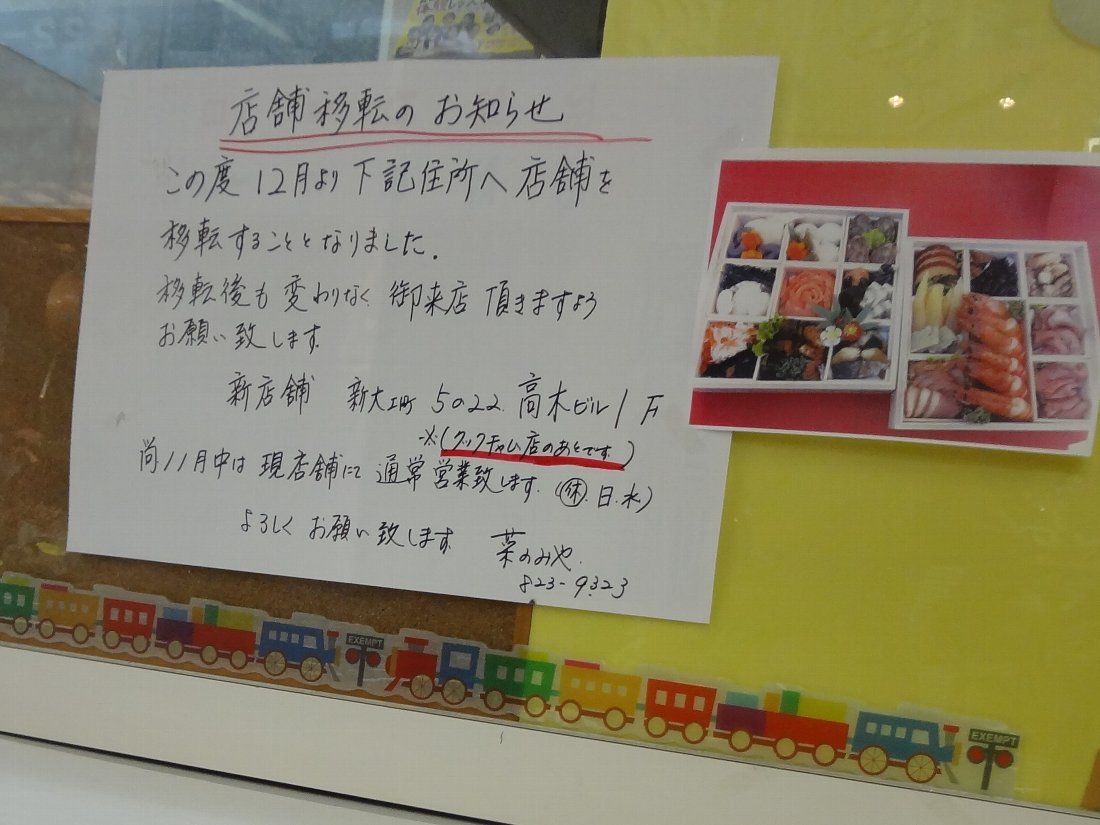 店舗移転のお知らせ
この度12月より下記住所へ店舗を
移転することとなりました.
移転後も変わりなく御来店頂きますよう
お願い致します.
新店舗 新大工町 5の22. 高木ビル1F
※(クックチャム店のあとです.)
尚11月中は現店舗にて通常営業致します.(休.日.水)
よろしくお願い致します. 菜のみや.
823-9323
EXEMPT
EXEMPT